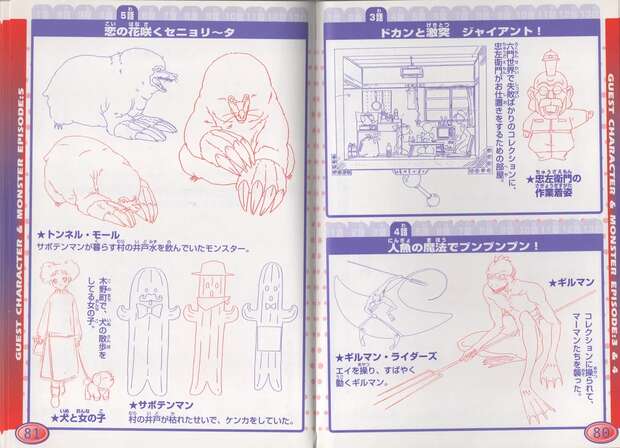 GUEST CHARACTER & MONSTER EPISODE:3 & 4
3話
ドカンと激突 ジャイアント!
六門世界で失敗ばかりのコレクションに、
忠左衛門がお仕置きをするための部屋。
★忠左衛門の
作業着姿
4話
人魚の魔法でプンプンプン!
★ギルマン
コレクションに操られて、
マーマンたちを襲った。
★ギルマン・ライダーズ
エイを操り、すばやく
動くギルマン。
80
GUEST CHARACTER & MONSTER EPISODE:5
5話
恋の花咲くセニョリ〜タ
★トンネル・モール
サボテンマンが暮らす村の井戸水を飲んでいたモンスター。
木野町で、犬の散歩を
してる女の子。
★犬と女の子
★サボテンマン
村の井戸が枯れたせいで、ケンカをしていた。
81